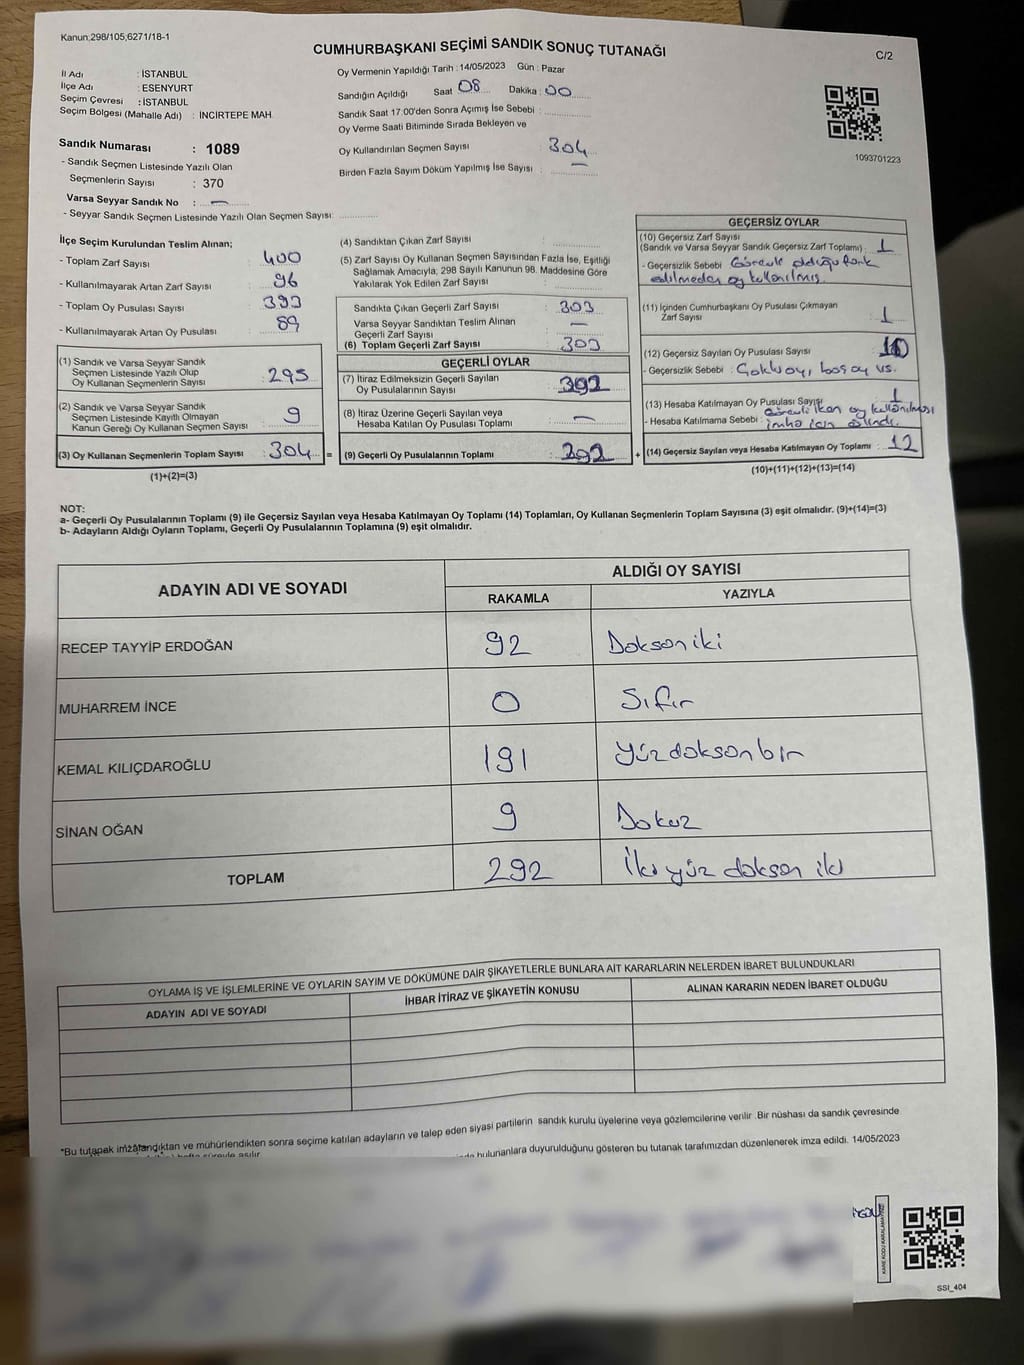 Kanun:298/105,6271/18-1
CUMHURBAŞKANI SEÇİMİ SANDIK SONUÇ TUTANAĞI
C/2
İl Adı : İSTANBUL
İlçe Adı : ESENYURT
Seçim Çevresi : İSTANBUL
Seçim Bölgesi (Mahalle Adı) : İNCİRTEPE MAH.
Oy Vermenin Yapıldığı Tarih : 14/05/2023 Gün : Pazar
Sandığın Açıldığı Saat 08 Dakika : 00
Sandık Saat 17:00'den Sonra Açımış İse Sebebi :
Oy Verme Saati Bitiminde Sırada Bekleyen ve
Oy Kullandırılan Seçmen Sayısı : 304
Birden Fazla Sayım Döküm Yapılmış İse Sayısı : —
1093701223
Sandık Numarası : 1089
- Sandık Seçmen Listesinde Yazılı Olan
Seçmenlerin Sayısı : 370
Varsa Seyyar Sandık No : —
- Seyyar Sandık Seçmen Listesinde Yazılı Olan Seçmen Sayısı:
İlçe Seçim Kurulundan Teslim Alınan;
- Toplam Zarf Sayısı : 400
- Kullanılmayarak Artan Zarf Sayısı : 96
- Toplam Oy Pusulası Sayısı : 393
- Kullanılmayarak Artan Oy Pusulası : 89
(1) Sandık ve Varsa Seyyar Sandık
Seçmen Listesinde Yazılı Olup
Oy Kullanan Seçmenlerin Sayısı : 295
(2) Sandık ve Varsa Seyyar Sandık
Seçmen Listesinde Kayıtlı Olmayan
Kanun Gereği Oy Kullanan Seçmen Sayısı : 9
(3) Oy Kullanan Seçmenlerin Toplam Sayısı : 304 =
(1)+(2)=(3)
(4) Sandıktan Çıkan Zarf Sayısı :
(5) Zarf Sayısı Oy Kullanan Seçmen Sayısından Fazla İse, Eşitliği
Sağlamak Amacıyla, 298 Sayılı Kanunun 98. Maddesine Göre
Yakılarak Yok Edilen Zarf Sayısı :
Sandıkta Çıkan Geçerli Zarf Sayısı : 303
Varsa Seyyar Sandıktan Teslim Alınan
Geçerli Zarf Sayısı : —
(6) Toplam Geçerli Zarf Sayısı : 303
GEÇERLİ OYLAR
(7) İtiraz Edilmeksizin Geçerli Sayılan
Oy Pusulalarının Sayısı : 292
(8) İtiraz Üzerine Geçerli Sayılan veya
Hesaba Katılan Oy Pusulası Toplamı : —
(9) Geçerli Oy Pusulalarının Toplamı : 292 +
GEÇERSİZ OYLAR
(10) Geçersiz Zarf Sayısı
(Sandık ve Varsa Seyyar Sandık Geçersiz Zarf Toplamı) : 1
- Geçersizlik Sebebi : Görevli olduğu fark
edilmeden oy kullanılmış.
(11) İçinden Cumhurbaşkanı Oy Pusulası Çıkmayan
Zarf Sayısı : 1
(12) Geçersiz Sayılan Oy Pusulası Sayısı : 10
- Geçersizlik Sebebi : Çoklu oy, boş oy vs.
(13) Hesaba Katılmayan Oy Pusulası Sayısı : 1
- Hesaba Katılmama Sebebi : Görevli iken oy kullanılması
imha için alındı.
(14) Geçersiz Sayılan veya Hesaba Katılmayan Oy Toplamı : 12
(10)+(11)+(12)+(13)=(14)
NOT:
a- Geçerli Oy Pusulalarının Toplamı (9) ile Geçersiz Sayılan veya Hesaba Katılmayan Oy Toplamı (14) Toplamları, Oy Kullanan Seçmenlerin Toplam Sayısına (3) eşit olmalıdır. (9)+(14)=(3)
b- Adayların Aldığı Oyların Toplamı, Geçerli Oy Pusulalarının Toplamına (9) eşit olmalıdır.
ADAYIN ADI VE SOYADI
ALDIĞI OY SAYISI
RAKAMLA YAZIYLA
RECEP TAYYİP ERDOĞAN 92 Doksan iki
MUHARREM İNCE 0 Sıfır
KEMAL KILIÇDAROĞLU 191 yüzdoksanbir
SİNAN OĞAN 9 Dokuz
TOPLAM 292 İki yüz doksan iki
OYLAMA İŞ VE İŞLEMLERİNE VE OYLARIN SAYIM VE DÖKÜMÜNE DAİR ŞİKAYETLERLE BUNLARA AİT KARARLARIN NELERDEN İBARET BULUNDUKLARI
ADAYIN ADI VE SOYADI İHBAR İTİRAZ VE ŞİKAYETİN KONUSU ALINAN KARARIN NEDEN İBARET OLDUĞU
*Bu tutanak imzalandıktan ve mühürlendikten sonra seçime katılan adayların ve talep eden siyasi partilerin sandık kurulu üyelerine veya gözlemcilerine verilir. Bir nüshası da sandık çevresinde
hafta süreyle asılır.
bulunanlara duyurulduğunu gösteren bu tutanak tarafımızdan düzenlenerek imza edildi. 14/05/2023
SSI_404